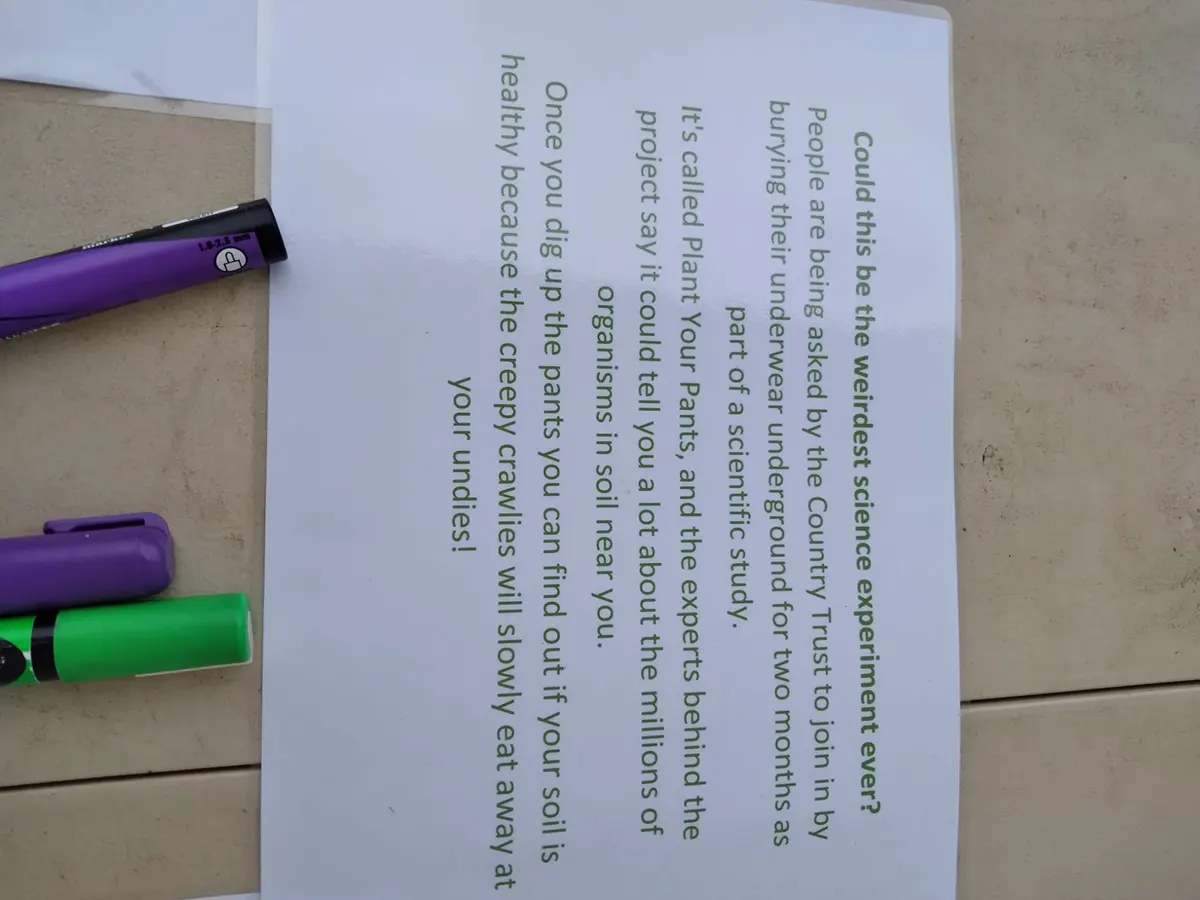 Could this be the weirdest science experiment ever?
People are being asked by the Country Trust to join in by
burying their underwear underground for two months as
part of a scientific study.
It's called Plant Your Pants, and the experts behind the
project say it could tell you a lot about the millions of
organisms in soil near you.
Once you dig up the pants you can find out if your soil is
healthy because the creepy crawlies will slowly eat away at
your undies!
marker
1.0-2.5 mm